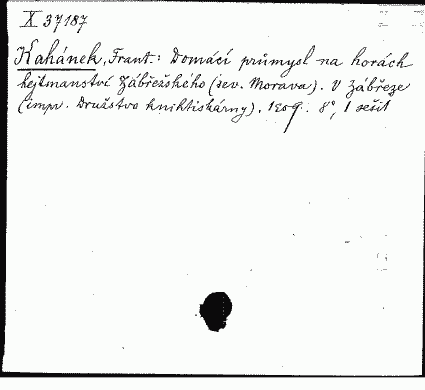 X 37187
Kahánek, Frant.: Domácí průmysl na horách
hejtmanství Zábřežského (sev. Morava). V Zábřeze
(impr. Družstvo knihtiskárny). 1909. 8°, 1 sešit